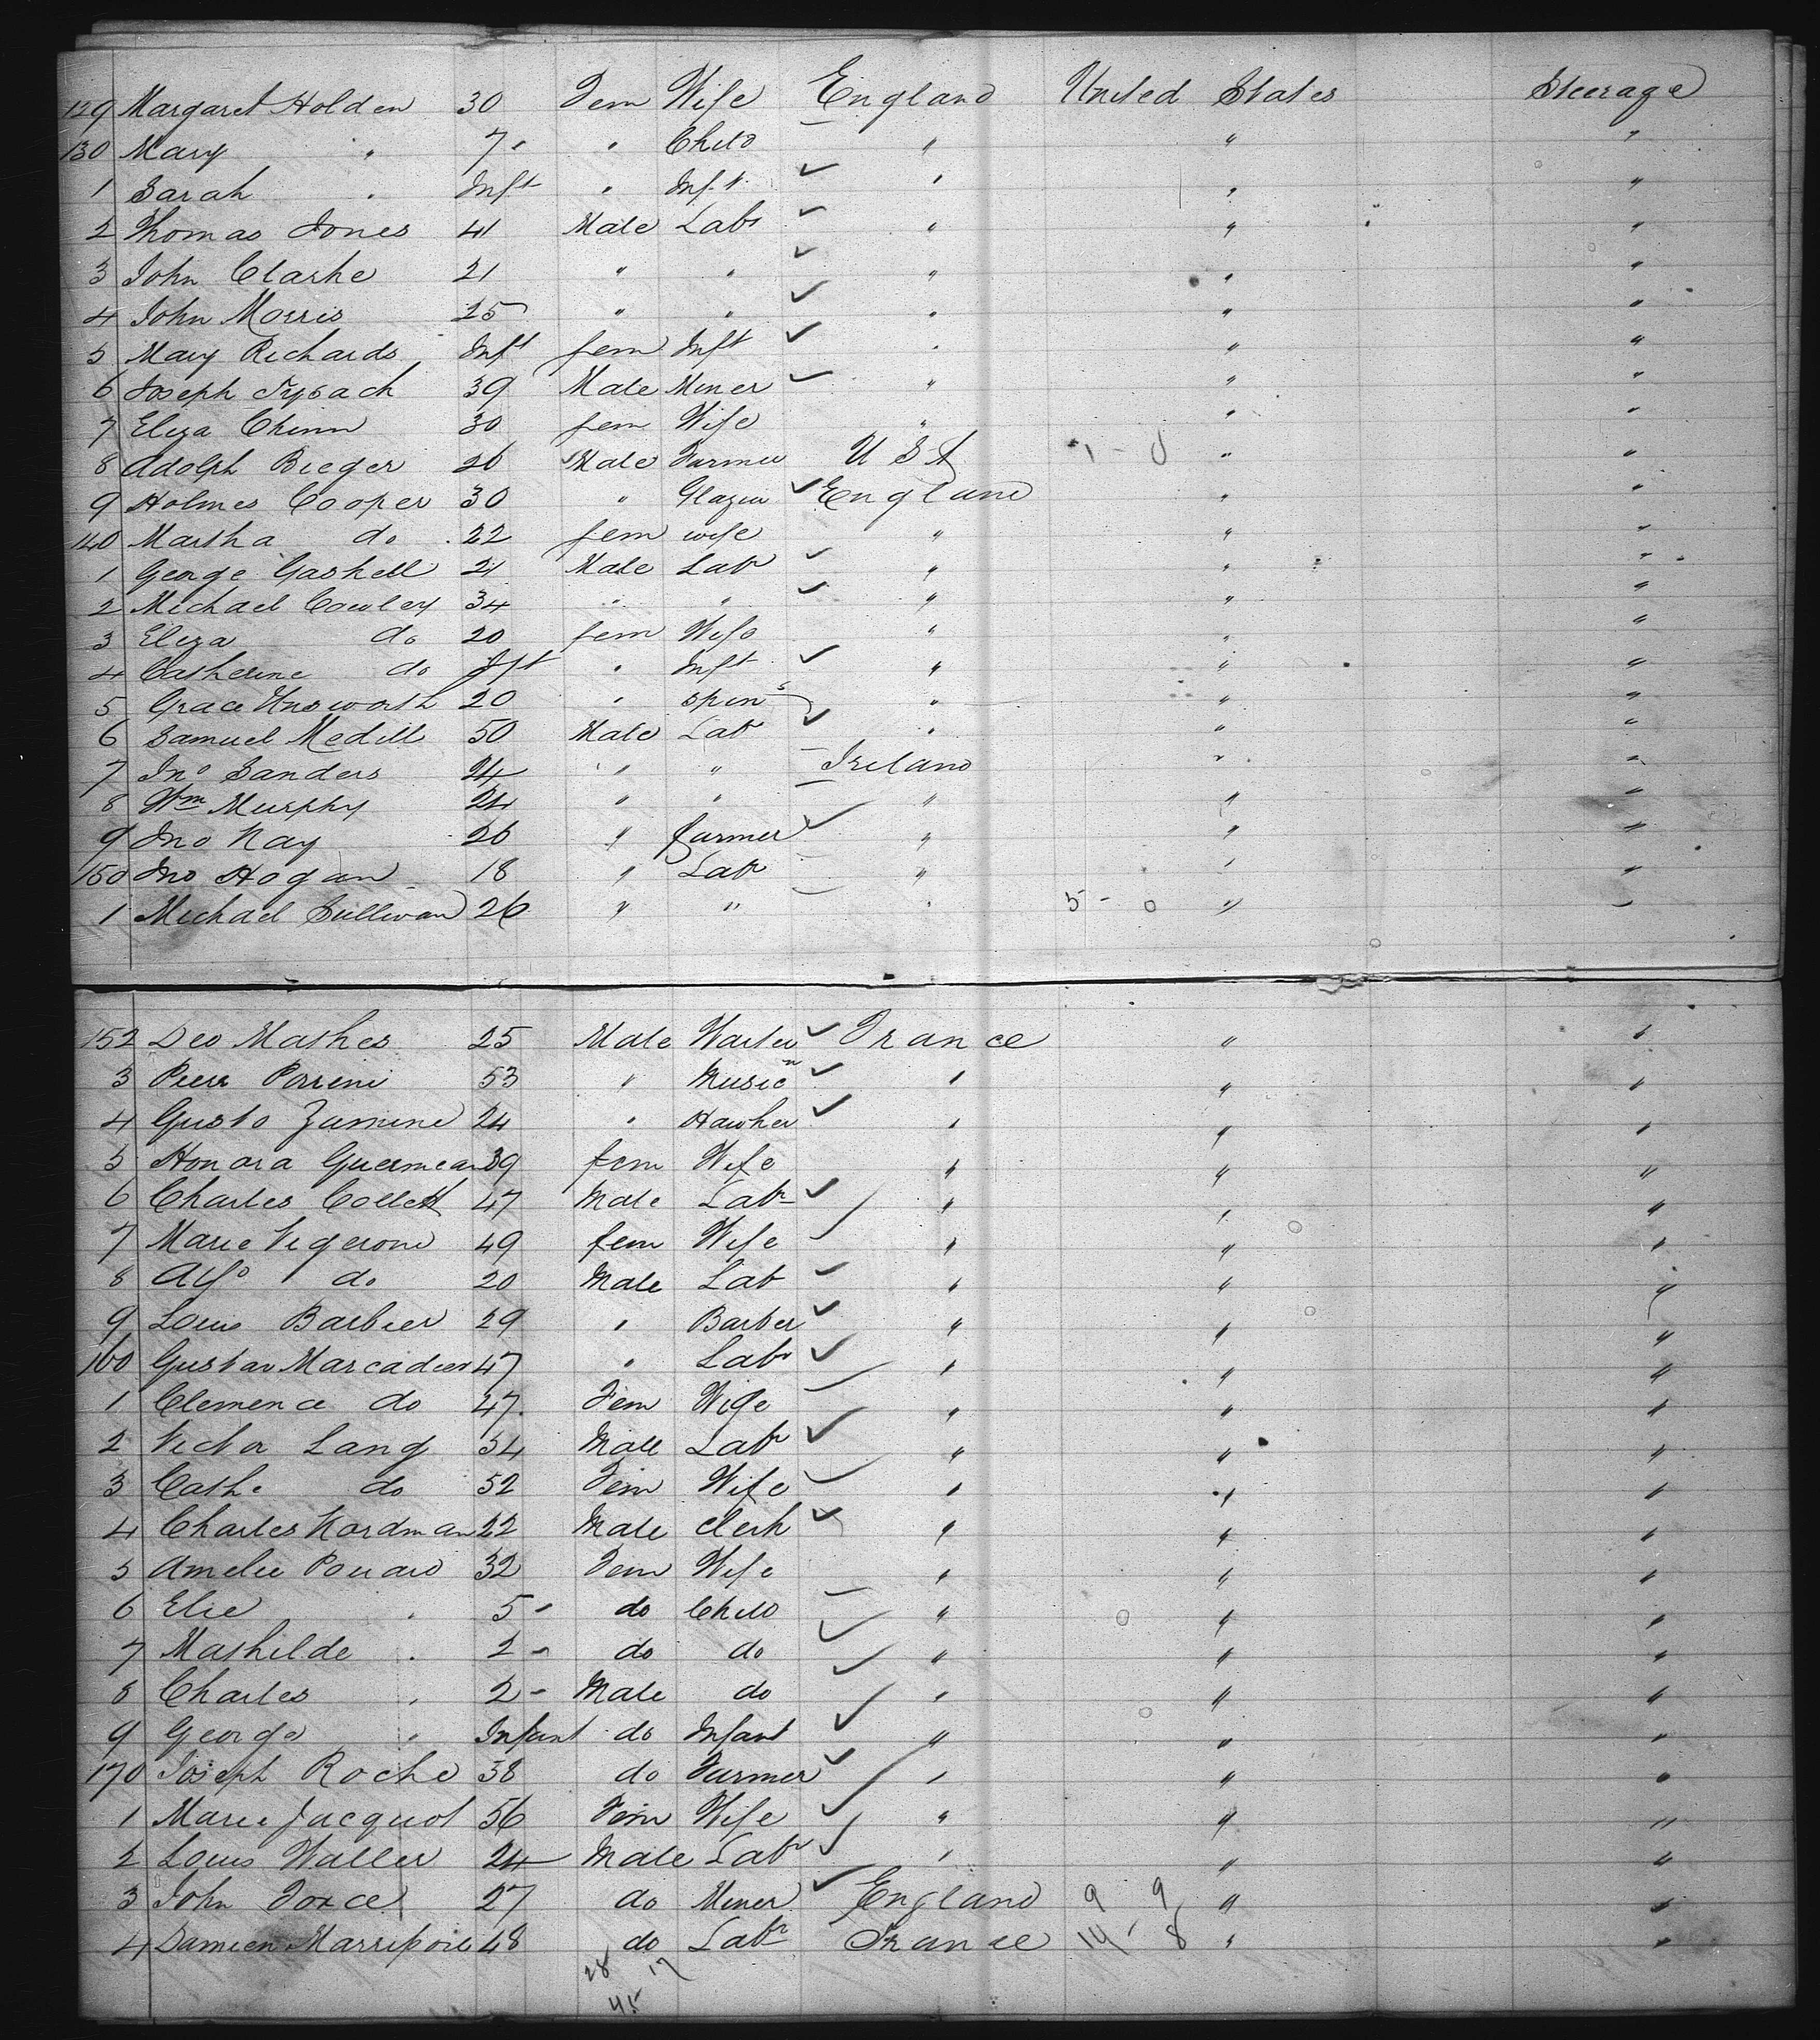 129 Margaret Holden 30 Fem Wife England United States Steerage
130 Mary " 7 " " Child " " "
1 Sarah " Inft " Inft " " "
2 Thomas Jones 41 Male Labr " " "
3 John Clarke 21 " " " " "
4 John Morris 25 " " " " "
5 Mary Richards Inft fem Inft " " "
6 Joseph 39 Male Miner " " "
7 Eliza Chinn 30 fem Wife " " "
8 Adolph Bieger 26 Male Farmer U S A " "
9 Holmes Cooper 30 " Glazier England " "
140 Martha do 22 fem wife " " "
1 George Gaskell 21 Male Labr " " "
2 Michael Cowley 34 " " " " "
3 Eliza do 20 fem Wife " " "
4 Catherine do Inft " Inft " " "
5 Grace Unsworth 20 " spins " " "
6 Samuel Medill 50 Male Lab " " "
7 Jno Sanders 24 " " Ireland " "
8 Wm Murphy 24 " " " " "
9 Jno Nay 26 " farmer " " "
150 Jno Hogan 18 " Labr " " "
1 Michael Sullivan 26 " " " 5 - 0 " "
152 Deo Mathes 25 Male Waiter France " "
3 Pierr Porrini 53 " Musicn " " "
4 Gusto Zamine 24 " Hawker " " "
5 Honora Guermean 39 fem Wife " " "
6 Charles Collett 47 Male Labr " " "
7 Marie Vigeron 49 fem Wife " " "
8 Alfo do 20 Male Lab " " "
9 Louis Barbier 29 " Barber " " "
160 Gustav Marcadier 47 " Labr " " "
1 Clemence do 47 Fem Wife " " "
2 Victor Lang 34 Male Labr " " "
3 Cathe do 52 Fem Wife " " "
4 Charles Nordman 22 Male Clerk " " "
5 Amelie 32 Fem Wife " " "
6 Elie " 5 - do Child " " "
7 Mathilde " 2 - do do " " "
8 Charles " 2 - Male do " " "
9 George " Infant do Infant " " "
170 Joseph Roche 38 do Farmer " " "
1 Marie Jacquot 56 Fem Wife " " "
2 Louis Waller 24 Male Labr " " "
3 John 27 do Miner England 9 9 " "
4 Damien 48 do Labr France 14 - 8 " "
28 17
45